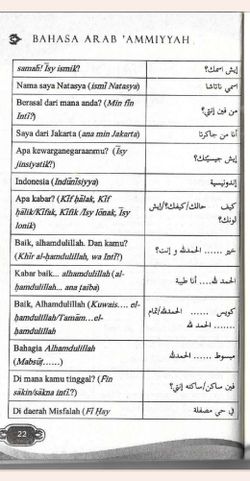 BAHASA ARAB 'AMMIYYAH
samah! Īsy ismik? إيش اسمك؟
Nama saya Natasya (ismī Natasya) اسمي ناتاشا
Berasal dari mana anda? (Min fīn
Intī?) من فين إنتي؟
Saya dari Jakarta (ana min Jakarta) أنا من جاكرتا
Apa kewarganegaraanmu? (Īsy
jinsiyatik?) إيش جنسيتك؟
Indonesia (Indūnīsiyya) إندونيسية
Apa kabar? (Kīf ḥālak, Kīf
ḥālik/Kīfak, Kīfik /Īsy lōnak, Īsy
lonik) كيف حالك/كيفك؟/إيش
لونك؟
Baik, alhamdulillah. Dan kamu?
(Khīr al-ḥamdulillah, wa Intī?) خير ...... الحمدلله و إنت؟
Kabar baik... alhamdulillah (al-
ḥamdulillah... ana ṭaiba) الحمد لله.... أنا طيبة
Baik, Alhamdulillah (Kuwais.... el-
ḥamdulillah/Tamām...el-
ḥamdulillah كويس ...... الحمدلله/تمام
....... الحمد لله
Bahagia Alhamdulillah
(Mabsūṭ......) مبسوط ...... الحمدلله
Di mana kamu tinggal? (Fīn
sākin/sākna intī.?) فين ساكن/ساكنه إنتي؟
Di daerah Misfalah (Fī Ḥay في حي مصفلة
22